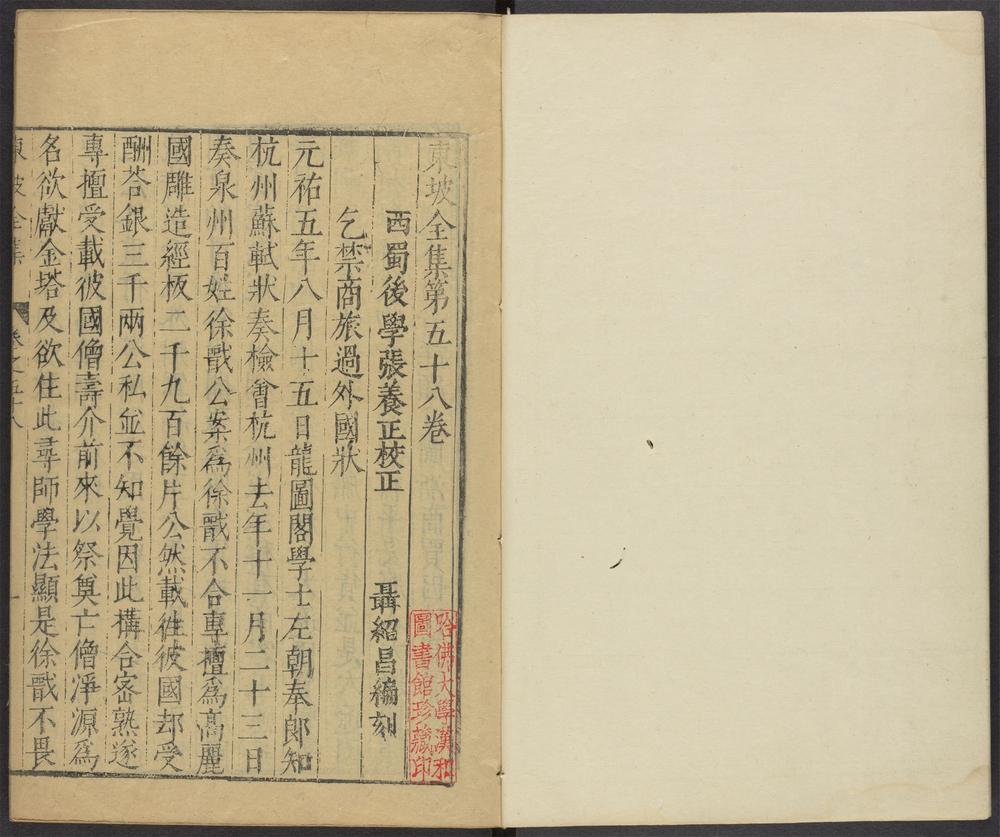 東坡全集第五十八卷
西蜀後學張養正校正　聶紹昌編刻
乞禁商旅過外國狀
元祐五年八月十五日龍圖閣學士左朝奉郎知
杭州蘇軾狀奏檢會杭州去年十一月二十三日
奏泉州百姓徐戩公案爲徐戩不合專擅爲高麗
國雕造經板二千九百餘片公然載徃彼國却受
酬荅銀三千兩公私並不知覺因此構合宻熟遂
專擅受載彼國僧壽介前來以祭奠亡僧淨源爲
名欲獻金塔及欲住此尋師學法顯是徐戩不畏
東坡全集　卷之五十八　一
哈佛大學漢和
圖書館珍藏印